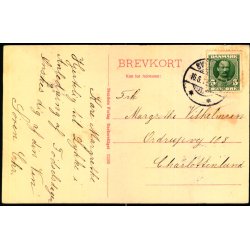 BREVKORT
Kun for Adressen.
DANMARK
5
Frk
Margrethe Vilhelmsen
Ordrupvej 108
Charlottenlund
Kære Margrethe
Hjertelig til Lykke i
Anledning af Fødselsdagen
ønskes dig af din Ven